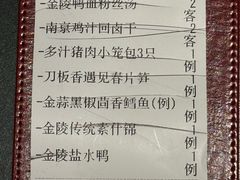 -金陵鸭血粉丝汤 2客
-南京鸡汁回卤干 2客
-多汁猪肉小笼包3只 1例
-刀板香遇见春片笋 1例
-金蒜黑椒茴香鳕鱼(例) 1例
-金陵传统素什锦 1例
-金陵盐水鸭 1